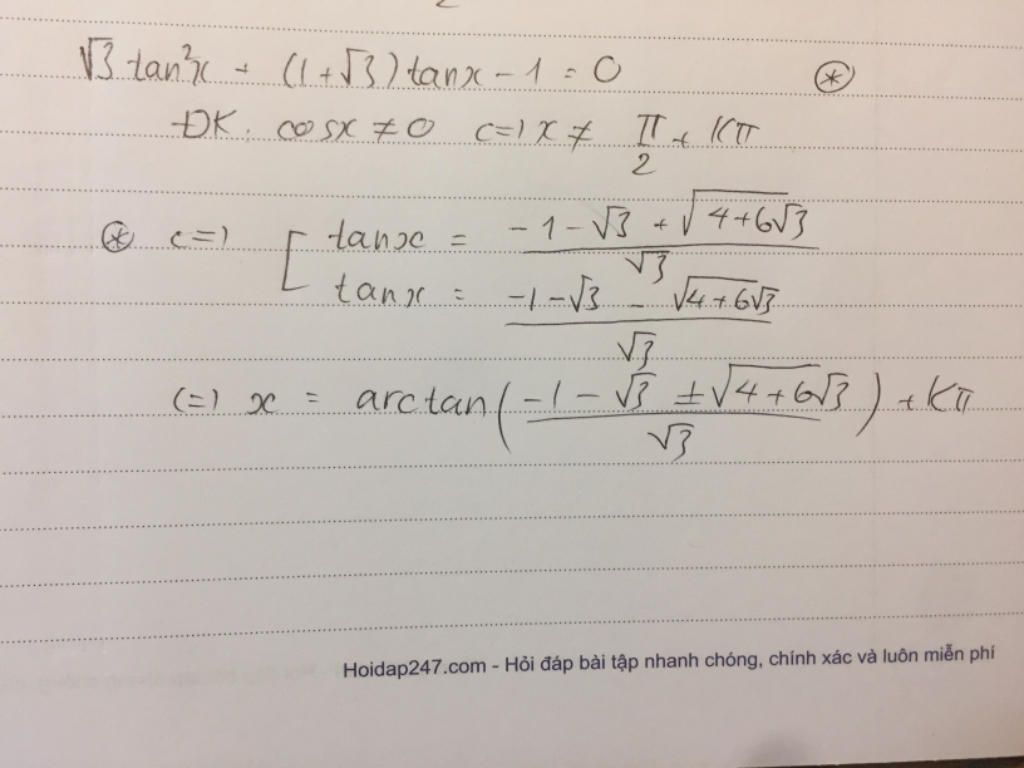 √3 tan²x + (1+√3)tanx - 1 = 0 (*)
ĐK: cosx ≠ 0 <=> x ≠ π/2 + Kπ
(*) <=> [ tanx = (-1-√3 + √(4+6√3))/√3
tanx = (-1-√3 - √(4+6√3))/√3
<=> x = arctan((-1-√3 ± √(4+6√3))/√3) + Kπ
Hoidap247.com - Hỏi đáp bài tập nhanh chóng, chính xác và luôn miễn phí